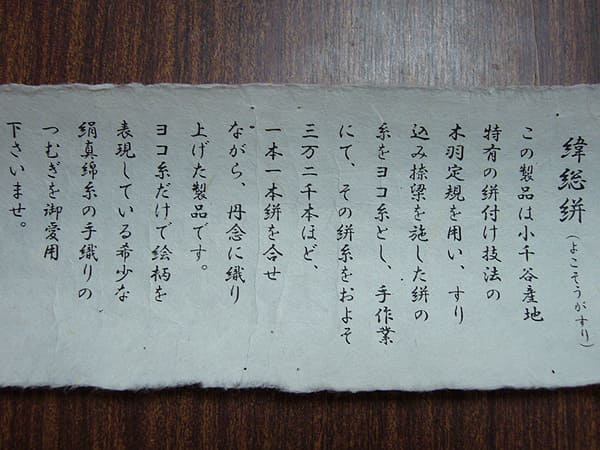 緯総絣(よこそうがすり)
この製品は小千谷産地
特有の絣付け技法の
木羽定規を用い、すり
込み捺染を施した絣の
糸をヨコ糸とし、手作業
にて、その絣糸をおよそ
三万二千本ほど、
一本一本絣を合せ
ながら、丹念に織り
上げた製品です。
ヨコ糸だけで絵柄を
表現している希少な
絹真綿糸の手織りの
つむぎを御愛用
下さいませ。